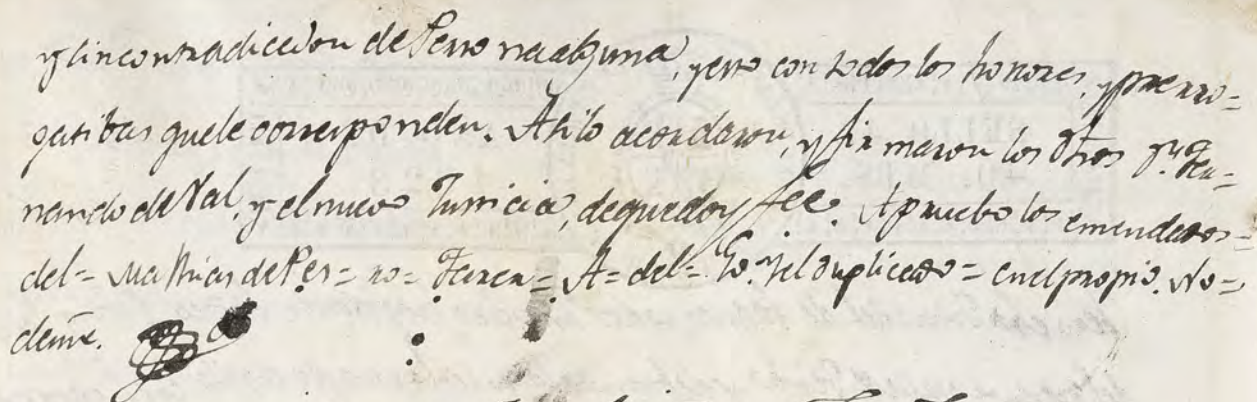 y sin contradiccion de Persona alguna, y esto con todos los honores, y prerro=
gatibas que le corresponden. Asi lo acordaron, y firmaron los dhos Dn. Fer=
nando del Val, y el nuevo Justicia, de que doy fee. Apruebo los emendados=
del= Mathias de Per= ro= = A= del= Yo. = en el propio. No=